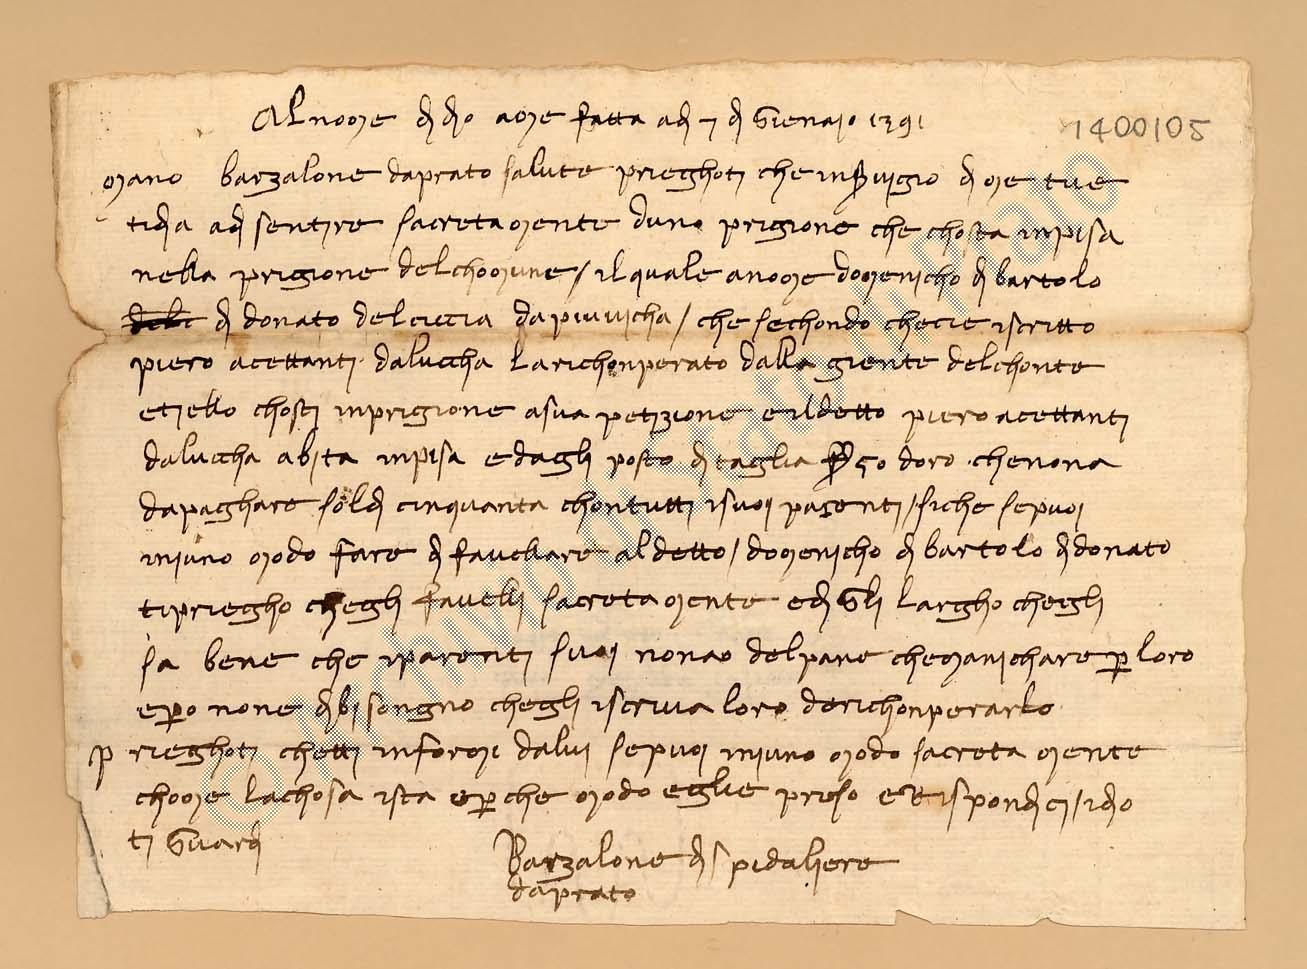 Al nome di dio amme fatta adi 7 di Gienaio 1391
1400105
mano barzalone daprato salute prieghoti che inservigio di me tue
tidia adi sentire sacretamente duno prigione che chosta inpisa
nella prigione delchomune / ilquale anome domenicho di bartolo
di donato delciccia dapiuvicha / che sechondo checie iscritto
piero acettanti daluccha larichonperato dalla giente delchonte
etiello chosti inprigione asua petizione eildetto piero acettanti
daluccha abita inpisa edagli posto di taglia 50 doro chenona
dapaghare soldi cinquanta chontutti isuoi parenti / siche sepuoi
iniuno modo fare di favellare aldetto / domenicho di bartolo didonato
tipriegho chegli favelli sacretamente edi Gli largho chegli
sa bene che iparenti suoi nonao delpane chemanichare per loro
epero none dibisongno chegli iscriva loro derichonperarlo
prieghoti chetti informi dalui sepuoi iniuno modo sacretamente
chome lachosa ista eperche modo eglie preso erispondici / idio
ti Guardi
Barzalone di spidaliere
daprato